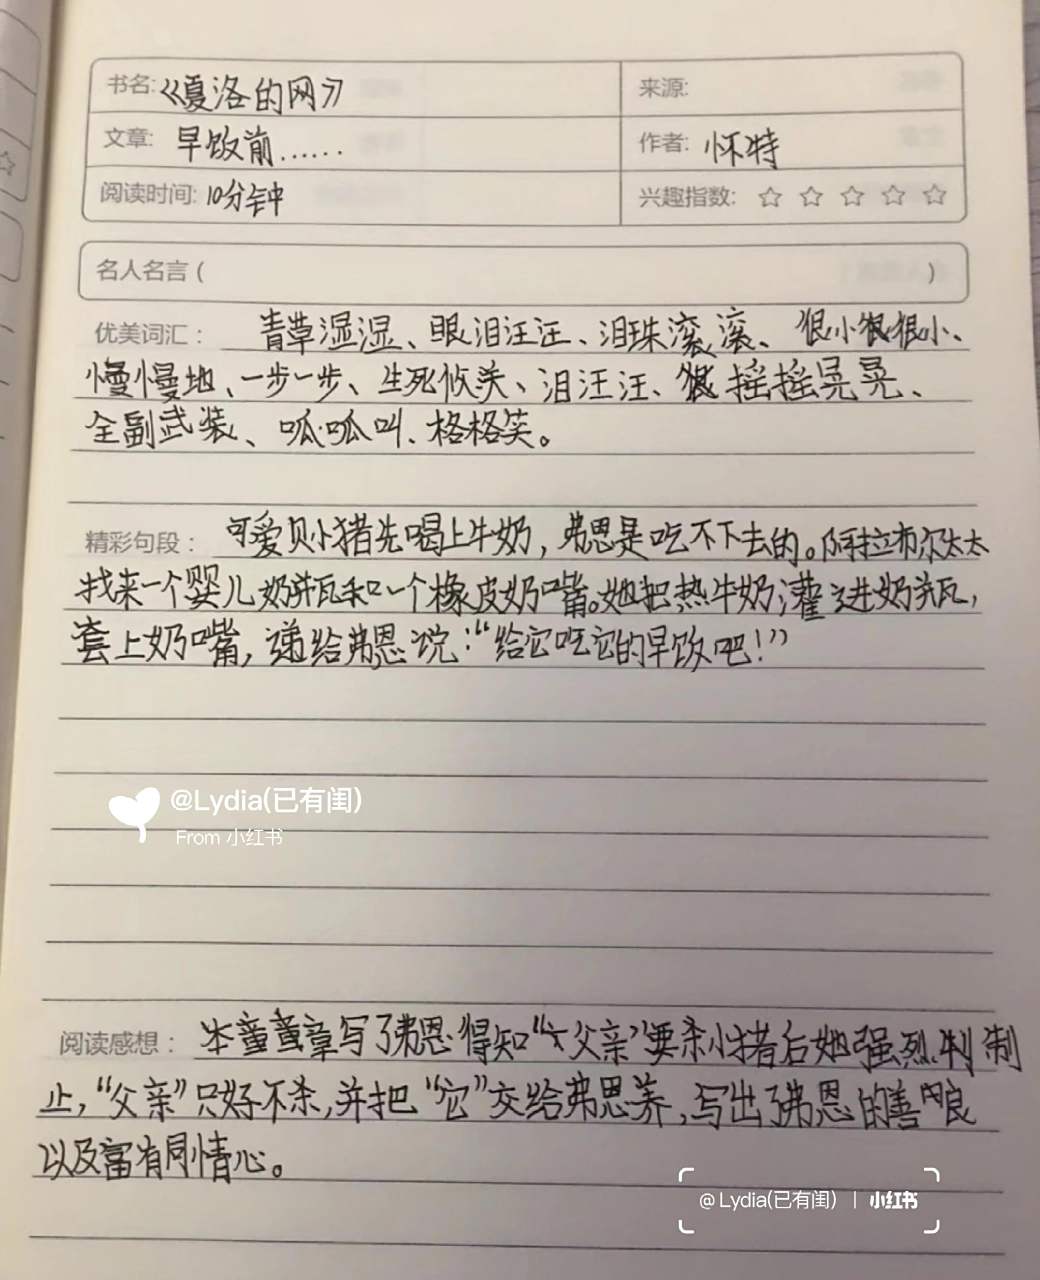 书名:《夏洛的网》 来源:
文章: 早饭前…… 作者: 怀特
阅读时间: 10分钟 兴趣指数: ☆ ☆ ☆ ☆ ☆
名人名言( )
优美词汇: 青草湿湿、眼泪汪汪、泪珠滚滚、很小很小、
慢慢地、一步一步、生死攸关、泪汪汪、摇摇晃晃、
全副武装、呱呱叫、格格笑。
精彩句段: 可爱贝小猪先喝上牛奶,弗恩是吃不下去的。阿拉布尔太太
找来一个婴儿奶瓶和一个橡皮奶嘴。她把热牛奶灌进奶瓶,
套上奶嘴,递给弗恩说:“给它吃它的早饭吧!”
@Lydia(已有闺)
From 小红书
阅读感想: 本章写了弗恩得知“父亲”要杀小猪后她强烈制
止,“父亲”只好不杀,并把“它”交给弗恩养,写出了弗恩的善良
以及富有同情心。
@Lydia(已有闺) | 小红书